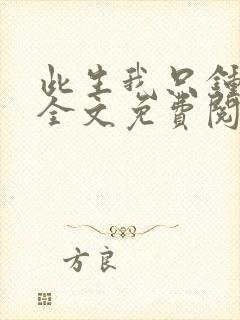 此生我只鍾
全文免費閱
方良